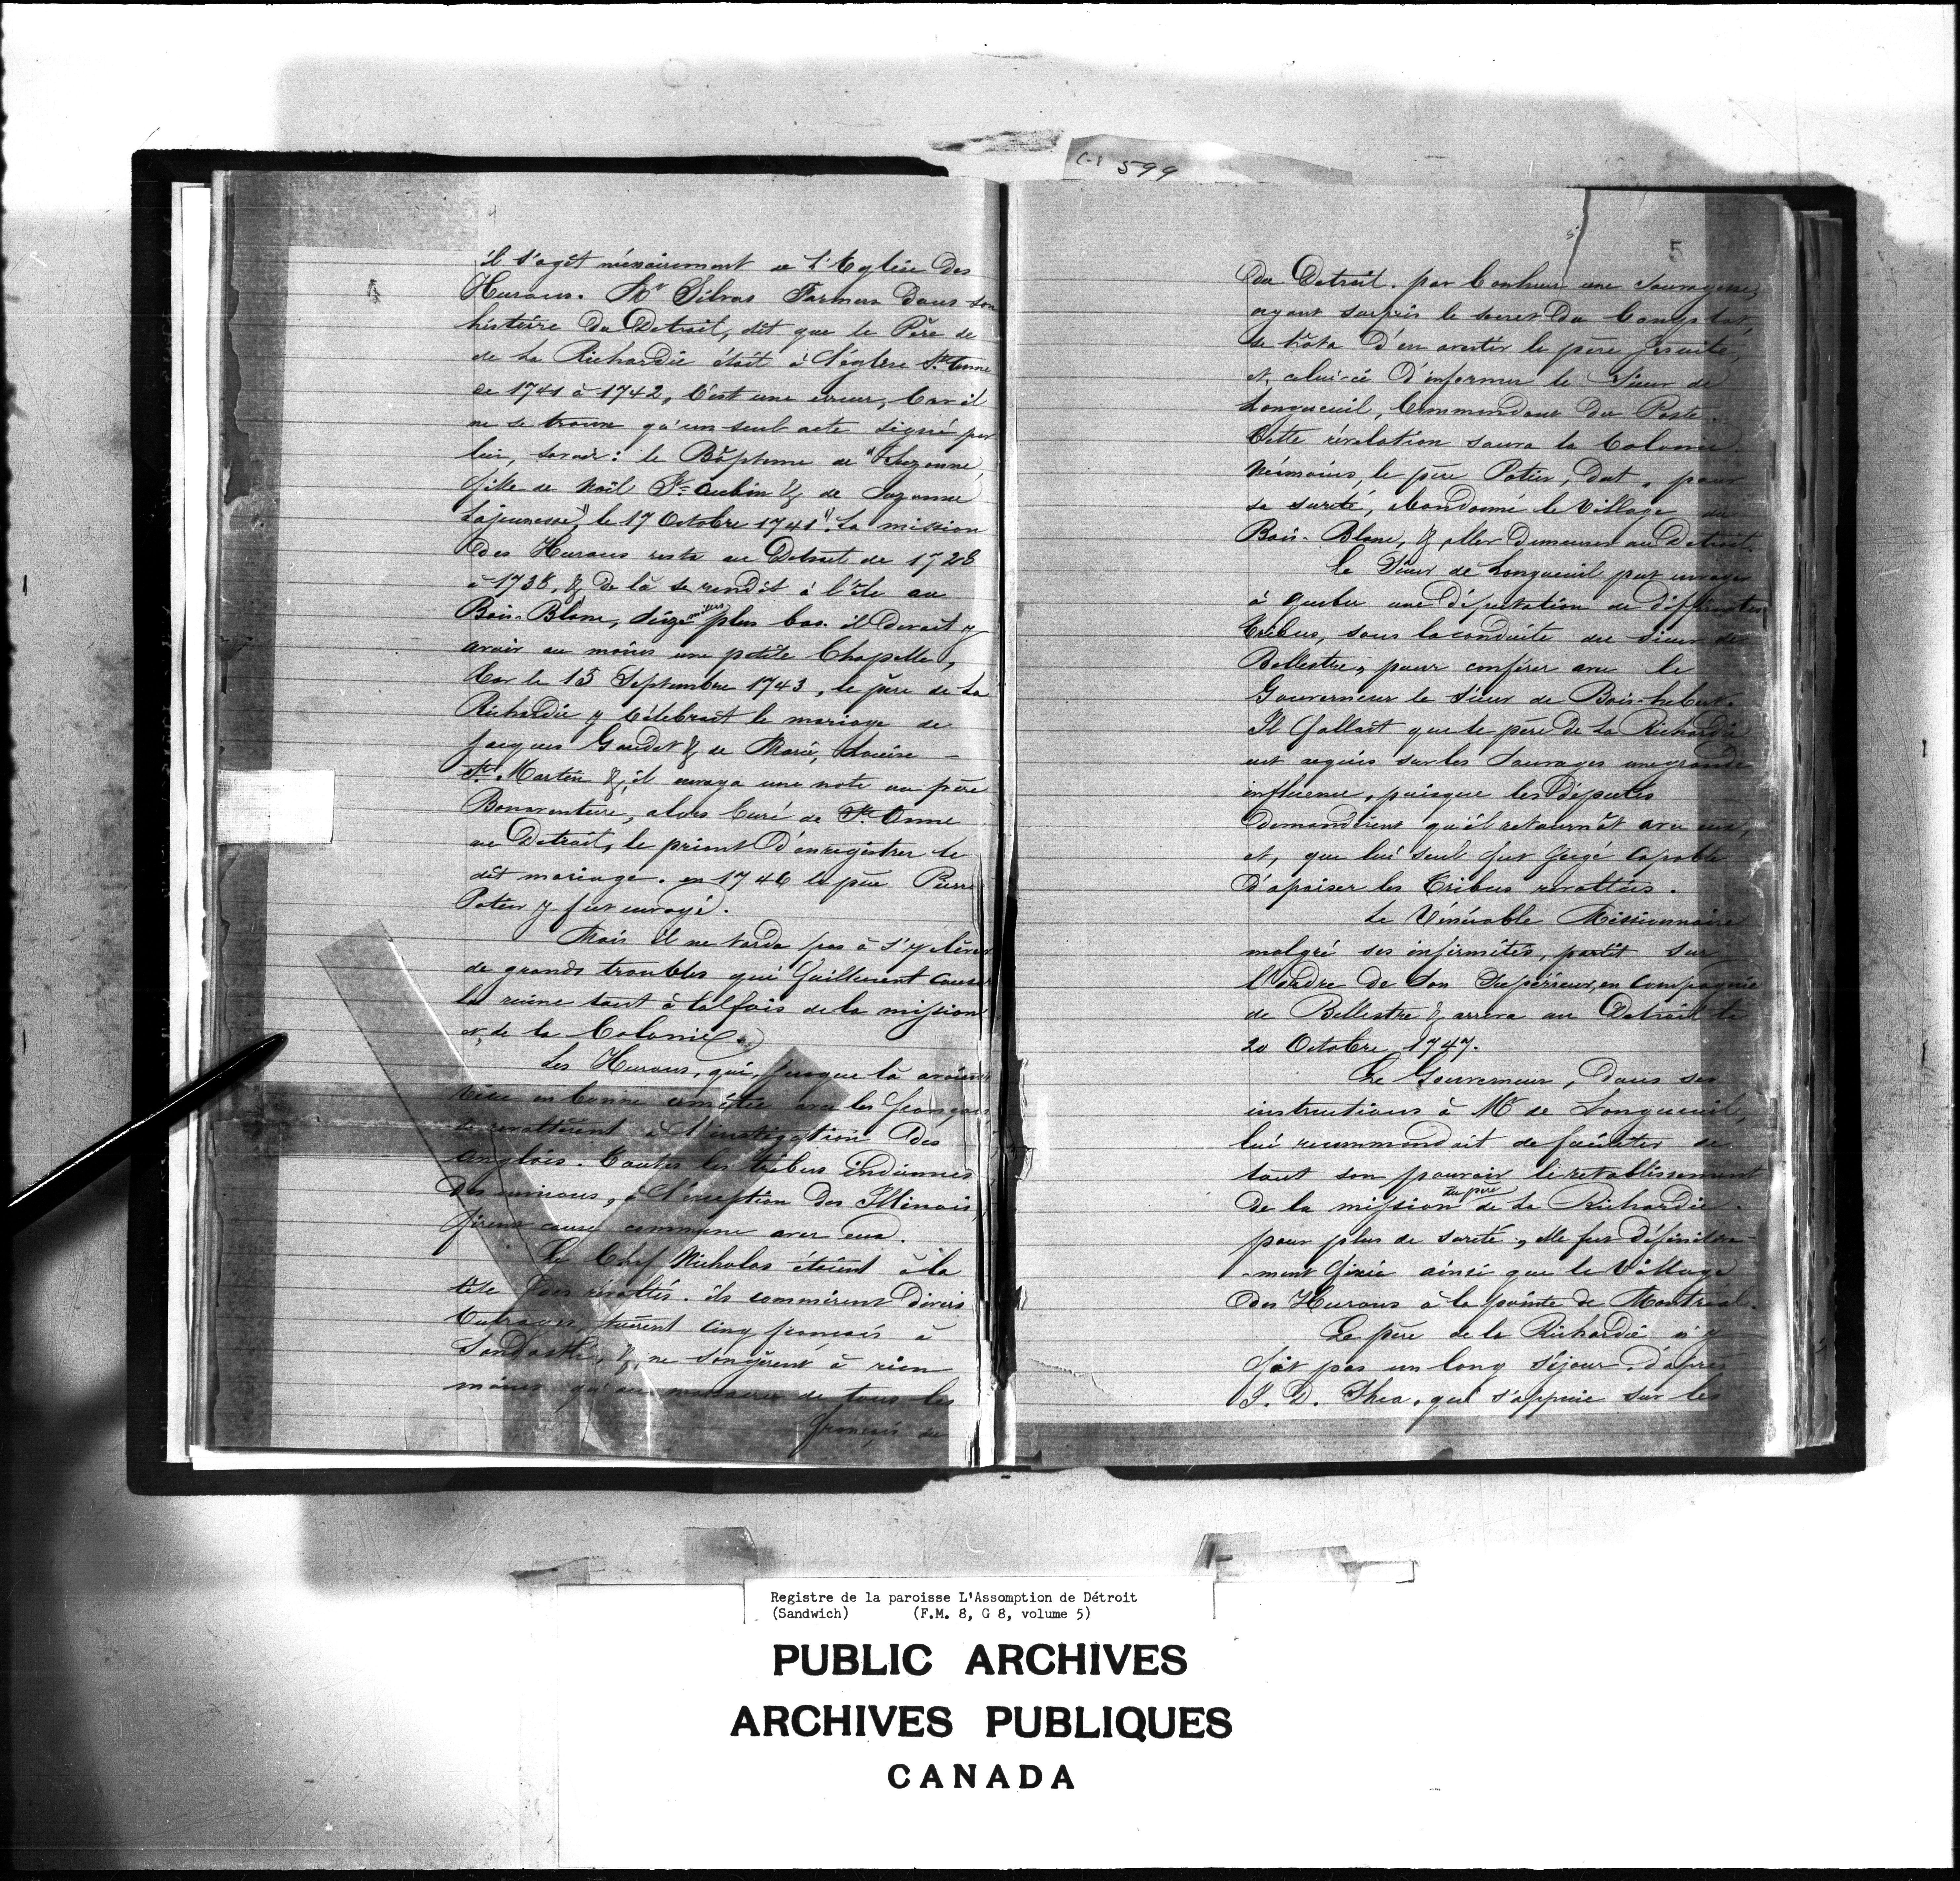 C-8 599
4
il s'agît nécéssairement de l'Eglise des
Hurons. Mr Silvas Farmer dans son
histoire du Detroit, dit que le Père de
de La Richardie était à l'église Ste Anne
de 1741 à 1742, C'est une erreur, Car il
ne se trouve qu'un seul acte signé par
lui, savoir: le Bapteme de "Suzanne,
fille de Noël St. Aubin & de Suzanne
Lajeunesse", le 17 Octobre 1741". La mission
des Hurons resta au Detroit de 1728
à 1738, & de là se rendit à l'île au
Bois-Blanc, seize milles plus bas. il devait y
avoir au moins une petite Chapelle,
Car le 15 Septembre 1743, le père de La
Richardie y Célébrait le mariage de
Jacques Gaudet & de Marie, Louise -
St. Martin &, il envoya une note au père
Bonaventure, alors Curé de Ste Anne
au Detroit, le priant d'enregistrer le
dit mariage. en 1746 le père Pierre
Potier y fut envoyé.
Mais il ne tarda pas à s'y élever
de grands troubles qui faillirent causer
la ruine tout à la fois de la mission
et, de la Colonie.
Les Hurons, qui, jusque là avaient
vécu en bonne amitié avec les français
se revoltèrent à l'instigation des
Anglais. Toutes les tribus indiennes
des environs, à l'exception des Illinois,
firent cause commune avec eux.
Le Chef Nicholas étaient à la
tête des révoltés. ils commirent divers
Outrages, tuèrent cinq français à
Sandoské, &, ne songèrent à rien
moins qu'au massacre de tous les
français du
5
5
du Detroit. par bonheur une Sauvagesse,
ayant surpris le secret du Complot,
se hâta d'en avertir le père Jesuite,
et, celui-ci d'informer le Sieur de
Longueuil, Commandant du Poste.
Cette révélation sauva la Colonie.
Néanmoins, le père Potier, dut, pour
sa sureté, abandonné le Village du
Bois-Blanc, & aller demeurer au Detroit.
Le Sieur de Longueuil put envoyer
à Quebec une députation de différentes
Tribus, sous la conduite du Sieur de
Bellestre, pour conférer avec le
Gouverneur le Sieur de Bois-hebert.
Il fallait que le père de La Richardie
eut acquis sur les Sauvages une grande
influence, puisque les députés
demandèrent qu'il retournât avec eux,
et, que lui seul fut jugé Capable
d'apaiser les Tribus revoltées.
Le Vénérable Missionnaire
malgré ses infirmités, partit sur
l'ordre de Son Supérieur, en Compagnie
de Bellestre & arriva au Detroit le
20 Octobre 1747.
Le Gouverneur, dans ses
instructions à Mr de Longueuil,
lui recommandait de faciliter de
tout son pouvoir le retablissement
de la mission du père de La Richardie.
pour plus de sureté, elle fut définitive-
-ment fixée ainsi que le Village
des Hurons à la pointe de Montréal.
Le père de la Richardie n'y
fit pas un long séjour. d'après
J. D. Shea, qui s'appuie sur les
Registre de la paroisse L'Assomption de Détroit
(Sandwich) (F.M. 8, G 8, volume 5)
PUBLIC ARCHIVES
ARCHIVES PUBLIQUES
CANADA